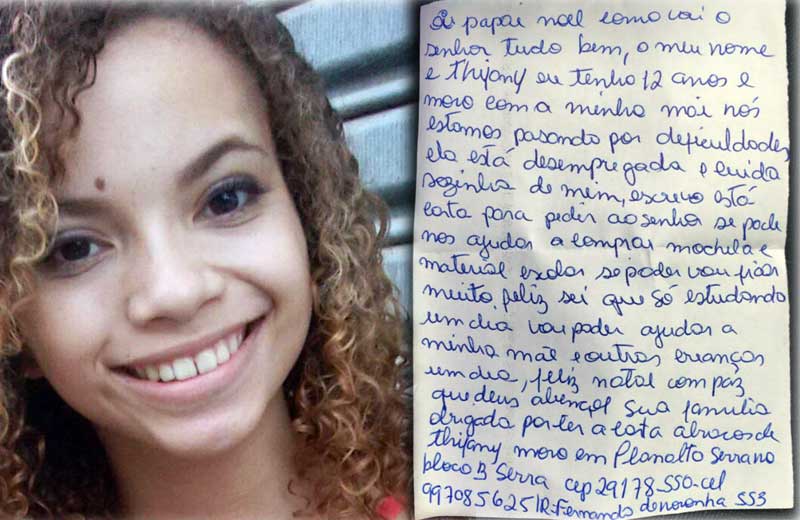 Oi papai noel como vai o
senhor tudo bem, o meu nome
e thifany eu tenho 12 anos e
moro com a minha mãe nós
estamos pasando por deficuldades
ela está desempregada e cuida
sozinha de mim, escrevo está
carta para pedir ao senhor se pode
nos ajudar a comprar mochila e
material escolar se poder vou ficar
muito feliz sei que só estudando
um dia vou poder ajudar a
minha mãe e outras crianças
um dia, feliz natal com paz
que deus abençoe sua familia
obrigada por ler a carta abraços de
thifany moro em Planalto Serrano
bloco B Serra cep 29178-550-cel
997085625/R-Fernando de noronha 553